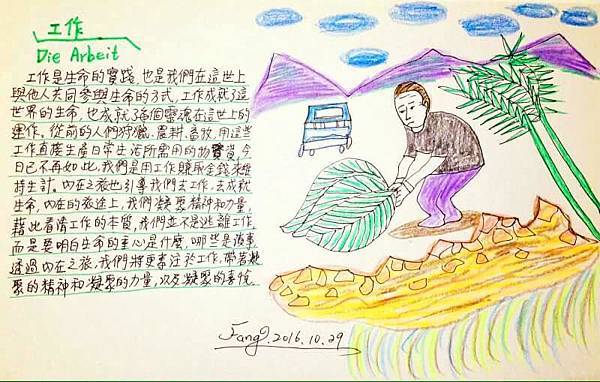 工作
Die Arbeit
工作是生命的實踐,也是我們在這世上
與他人共同參與生命的方式,工作成就了這
世界的生命,也成就了各個靈魂在這世上的
運作,從前的人們狩獵、農耕、畜牧,用這些
工作直接生產日常生活所需用的物資,今
日已不再如此,我們是用工作賺取金錢來維
持生計,內在之旅也引導我們去工作,去成就
生命,內在的旅途上,我們凝聚精神和力量,
藉此看清工作的本質,我們並不是逃離工作
而是要明白生命的重心是什麼,哪些是瑣事
透過內在之旅,我們將更專注於工作,帶著凝
聚的精神和凝聚的力量,以及凝聚的喜悅.
Fang.2016.10.29